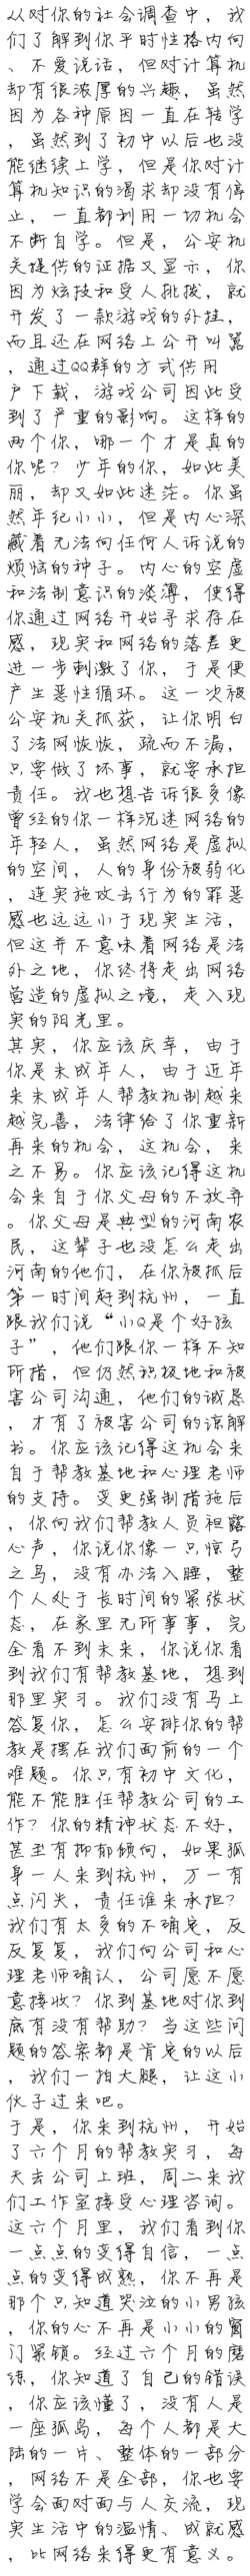 从对你的社会调查中，我
们了解到你平时性格内向
、不爱说话，但对计算机
却有很浓厚的兴趣，虽然
因为各种原因一直在转学
，虽然到了初中以后也没
能继续上学，但是你对计
算机知识的渴求却没有停
止，一直都利用一切机会
不断自学。但是，公安机
关提供的证据又显示，你
因为炫技和受人挑拨，就
开发了一款游戏的外挂，
而且还在网络上公开叫嚣
，通过QQ群的方式供用
户下载，游戏公司因此受
到了严重的影响。这样的
两个你，哪一个才是真的
你呢？少年的你，如此美
丽，却又如此迷茫。你虽
然年纪小小，但是内心深
藏着无法向任何人诉说的
烦恼的种子。内心的空虚
和法制意识的淡薄，使得
你通过网络开始寻求存在
感，现实和网络的落差更
进一步刺激了你，于是便
产生恶性循环。这一次被
公安机关抓获，让你明白
了法网恢恢，疏而不漏，
只要做了坏事，就要承担
责任。我也想告诉很多像
曾经的你一样沉迷网络的
年轻人，虽然网络是虚拟
的空间，人的身份被弱化
，连实施攻击行为的罪恶
感也远远小于现实生活，
但这并不意味着网络是法
外之地，你终将走出网络
营造的虚拟之境，走入现
实的阳光里。
其实，你应该庆幸，由于
你是未成年人，由于近年
来未成年人帮教机制越来
越完善，法律给了你重新
再来的机会，这机会，来
之不易。你应该记得这机
会来自于你父母的不放弃
。你父母是典型的河南农
民，这辈子也没怎么走出
河南的他们，在你被抓后
第一时间赶到杭州，一直
跟我们说“小Q是个好孩
子”，他们跟你一样不知
所措，但仍然积极地和被
害公司沟通，他们的诚恳
，才有了被害公司的谅解
书。你应该记得这机会来
自于帮教基地和心理老师
的支持。变更强制措施后
，你向我们帮教人员袒露
心声，你说你像一只惊弓
之鸟，没有办法入睡，整
个人处于长时间的紧张状
态，在家里无所事事，完
全看不到未来，你说你看
到我们有帮教基地，想到
那里实习。我们没有马上
答复你，怎么安排你的帮
教是摆在我们面前的一个
难题。你只有初中文化，
能不能胜任帮教公司的工
作？你的精神状态不好，
甚至有抑郁倾向，如果孤
身一人来到杭州，万一有
点闪失，责任谁来承担？
我们有太多的不确定，反
反复复，我们向公司和心
理老师确认，公司愿不愿
意接收？你到基地对你到
底有没有帮助？当这些问
题的答案都是肯定的以后
，我们一拍大腿，让这小
伙子过来吧。
于是，你来到杭州，开始
了六个月的帮教实习，每
天去公司上班，周二来我
们工作室接受心理咨询。
这六个月里，我们看到你
一点点的变得自信，一点
点的变得成熟，你不再是
那个只知道哭泣的小男孩
，你的心不再是小小的窗
门紧锁。经过六个月的磨
练，你知道了自己的错误
，你应该懂了，没有人是
一座孤岛，每个人都是大
陆的一片、整体的一部分
，网络不是全部，你也要
学会面对面与人交流，现
实生活中的温情、成就感
，比网络来得更有意义。